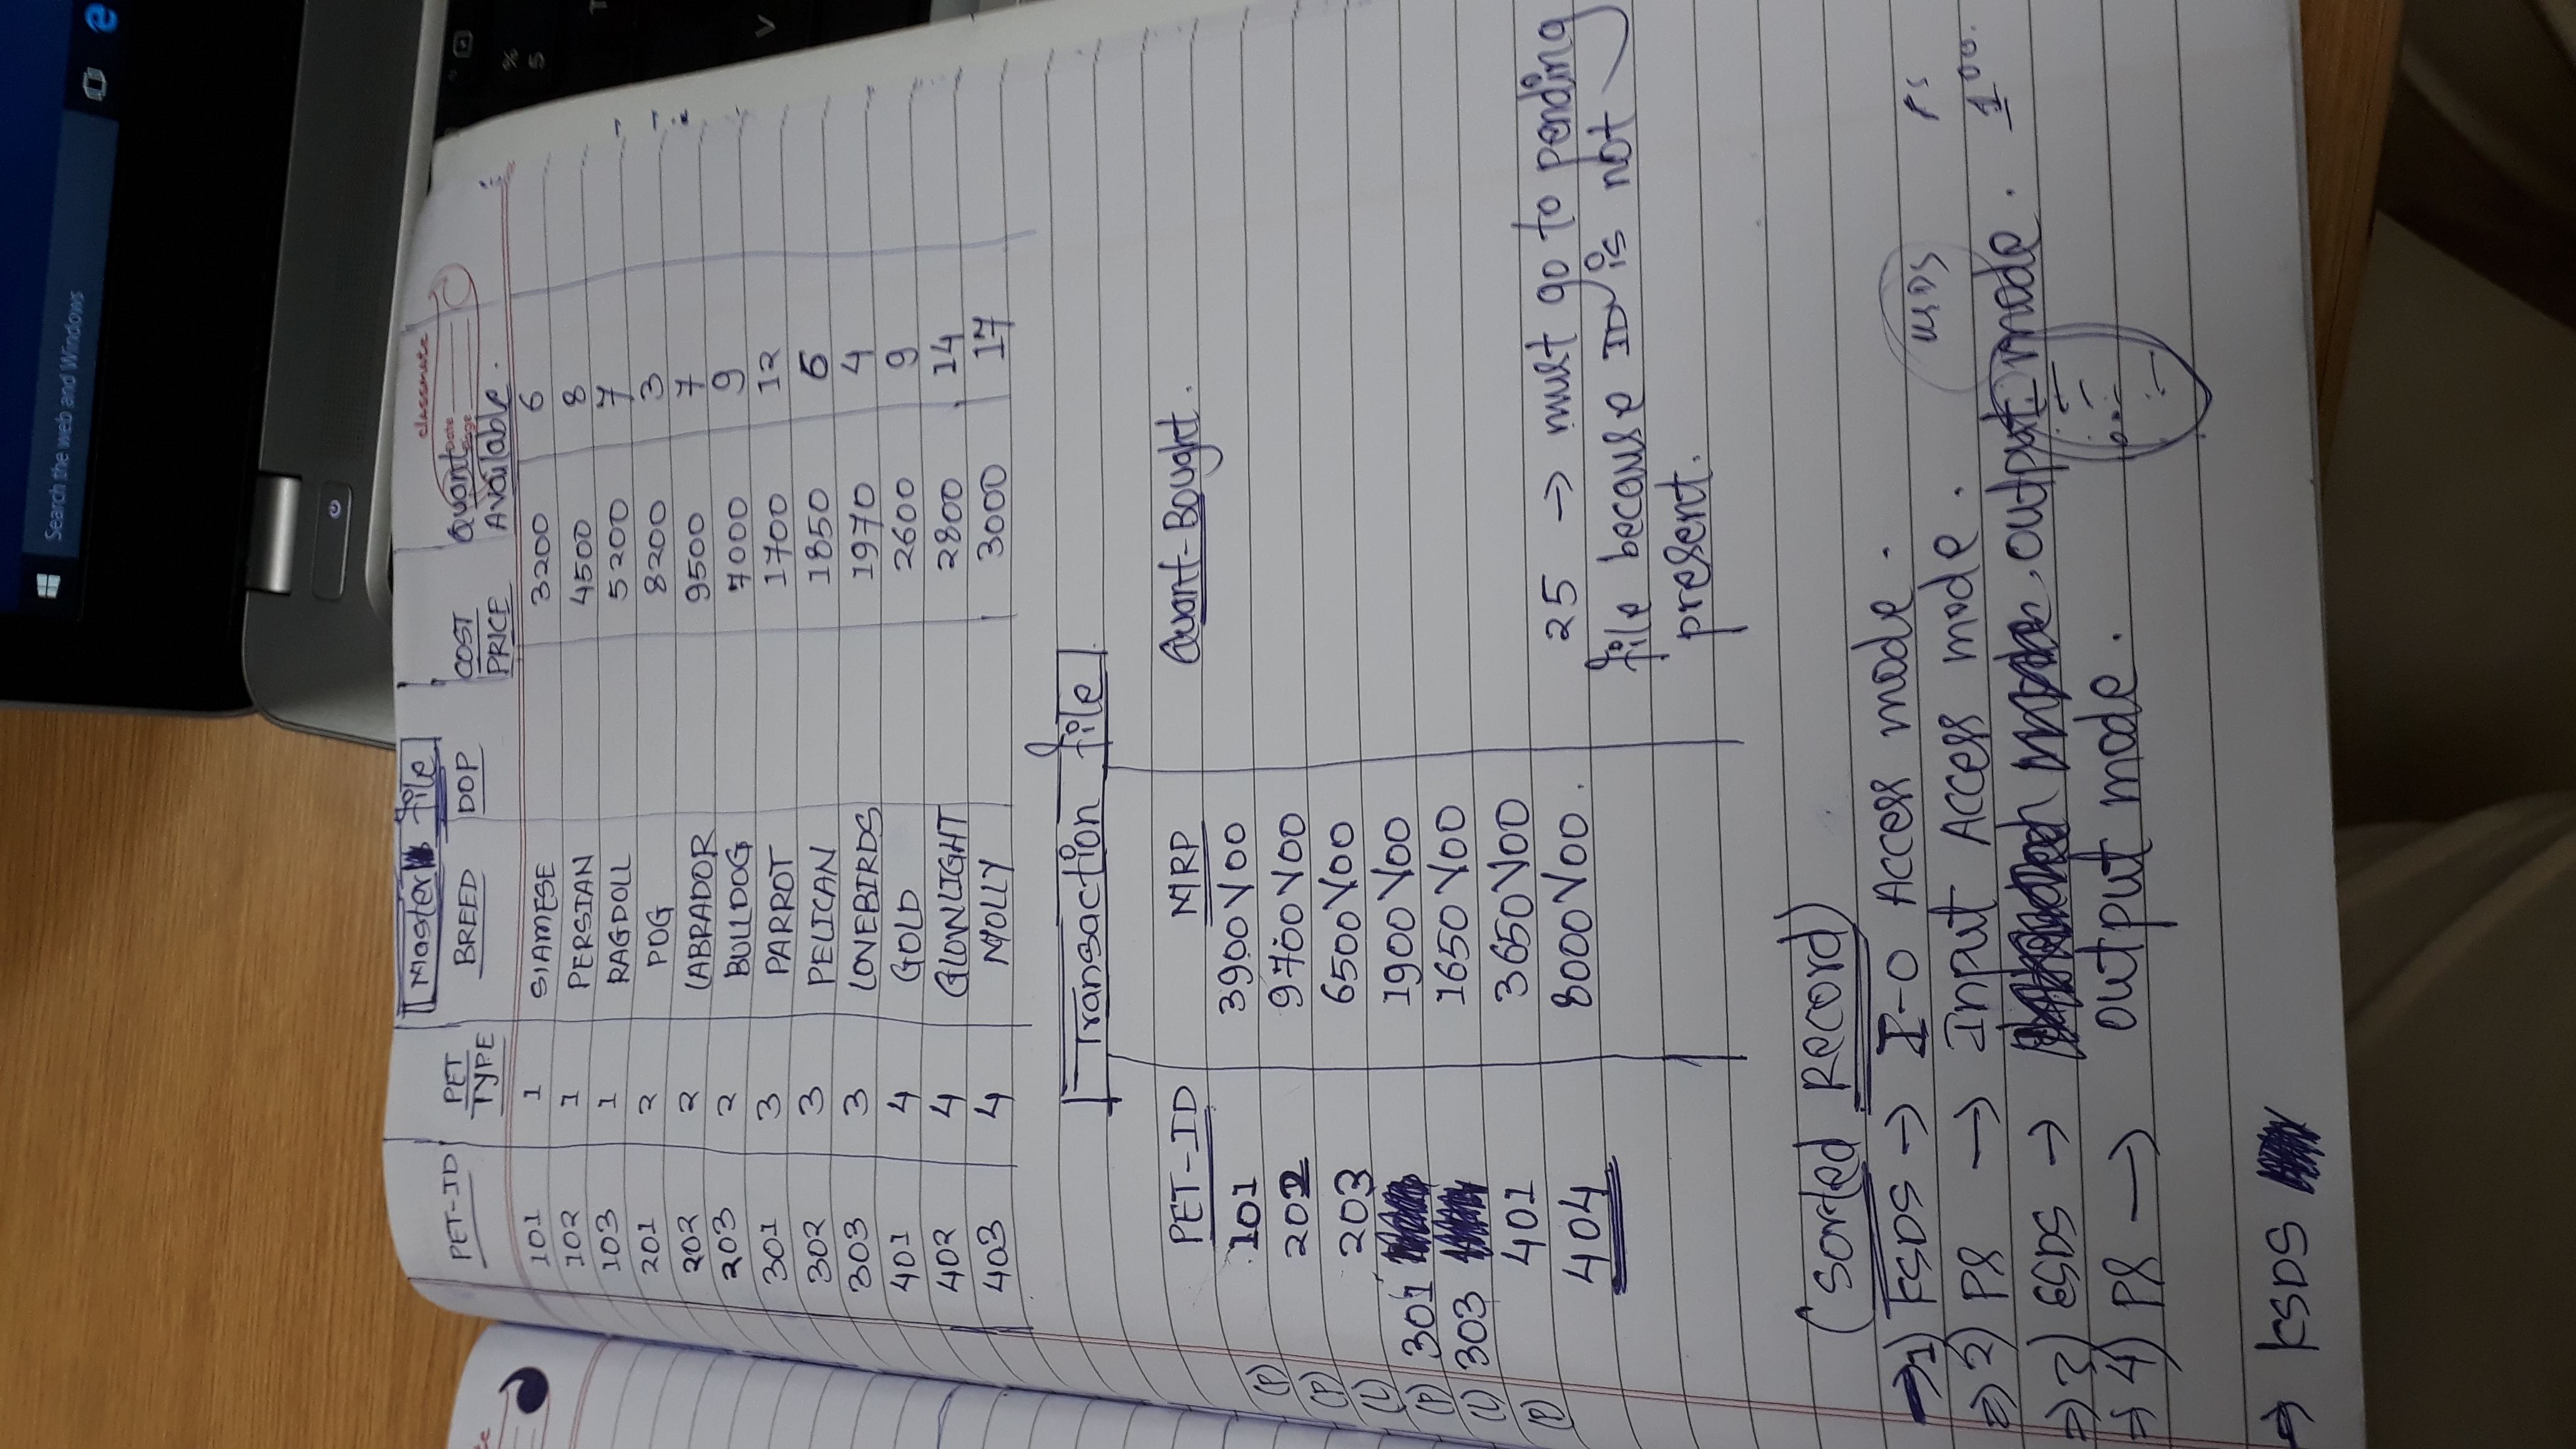 Search the web and Windows
Master File
classmate
Date
Page
PET-ID PET TYPE BREED DOP COST PRICE Quant Available.
101 1 SIAMESE 3200 6
102 1 PERSIAN 4500 8
103 1 RAGDOLL 5200 7
201 2 POG 8200 3
202 2 LABRADOR 9500 7
203 2 BULLDOG 7000 9
301 3 PARROT 1700 12
302 3 PELICAN 1850 6
303 3 LOVEBIRDS 1970 4
401 4 GOLD 2600 9
402 4 GLOWLIGHT 2800 14
403 4 MOLLY 3000 17
Transaction file
PET-ID MRP Quant-Bought.
(P) 101 3900V00
(P) 202 9700V00
(L) 203 6500V00
(P) 301 1900V00
(L) 303 1650V00
(P) 401 3650V00
404 8000V00. 25 → must go to pending
file because ID is not
present.
(Sorted Record)
→1) KSDS → I-O Access mode.
⇒2) PS → Input Access mode.
⇒3) ESDS → output mode.
⇒4) PS → output mode.
PS
100.
→ KSDS
% 5
V